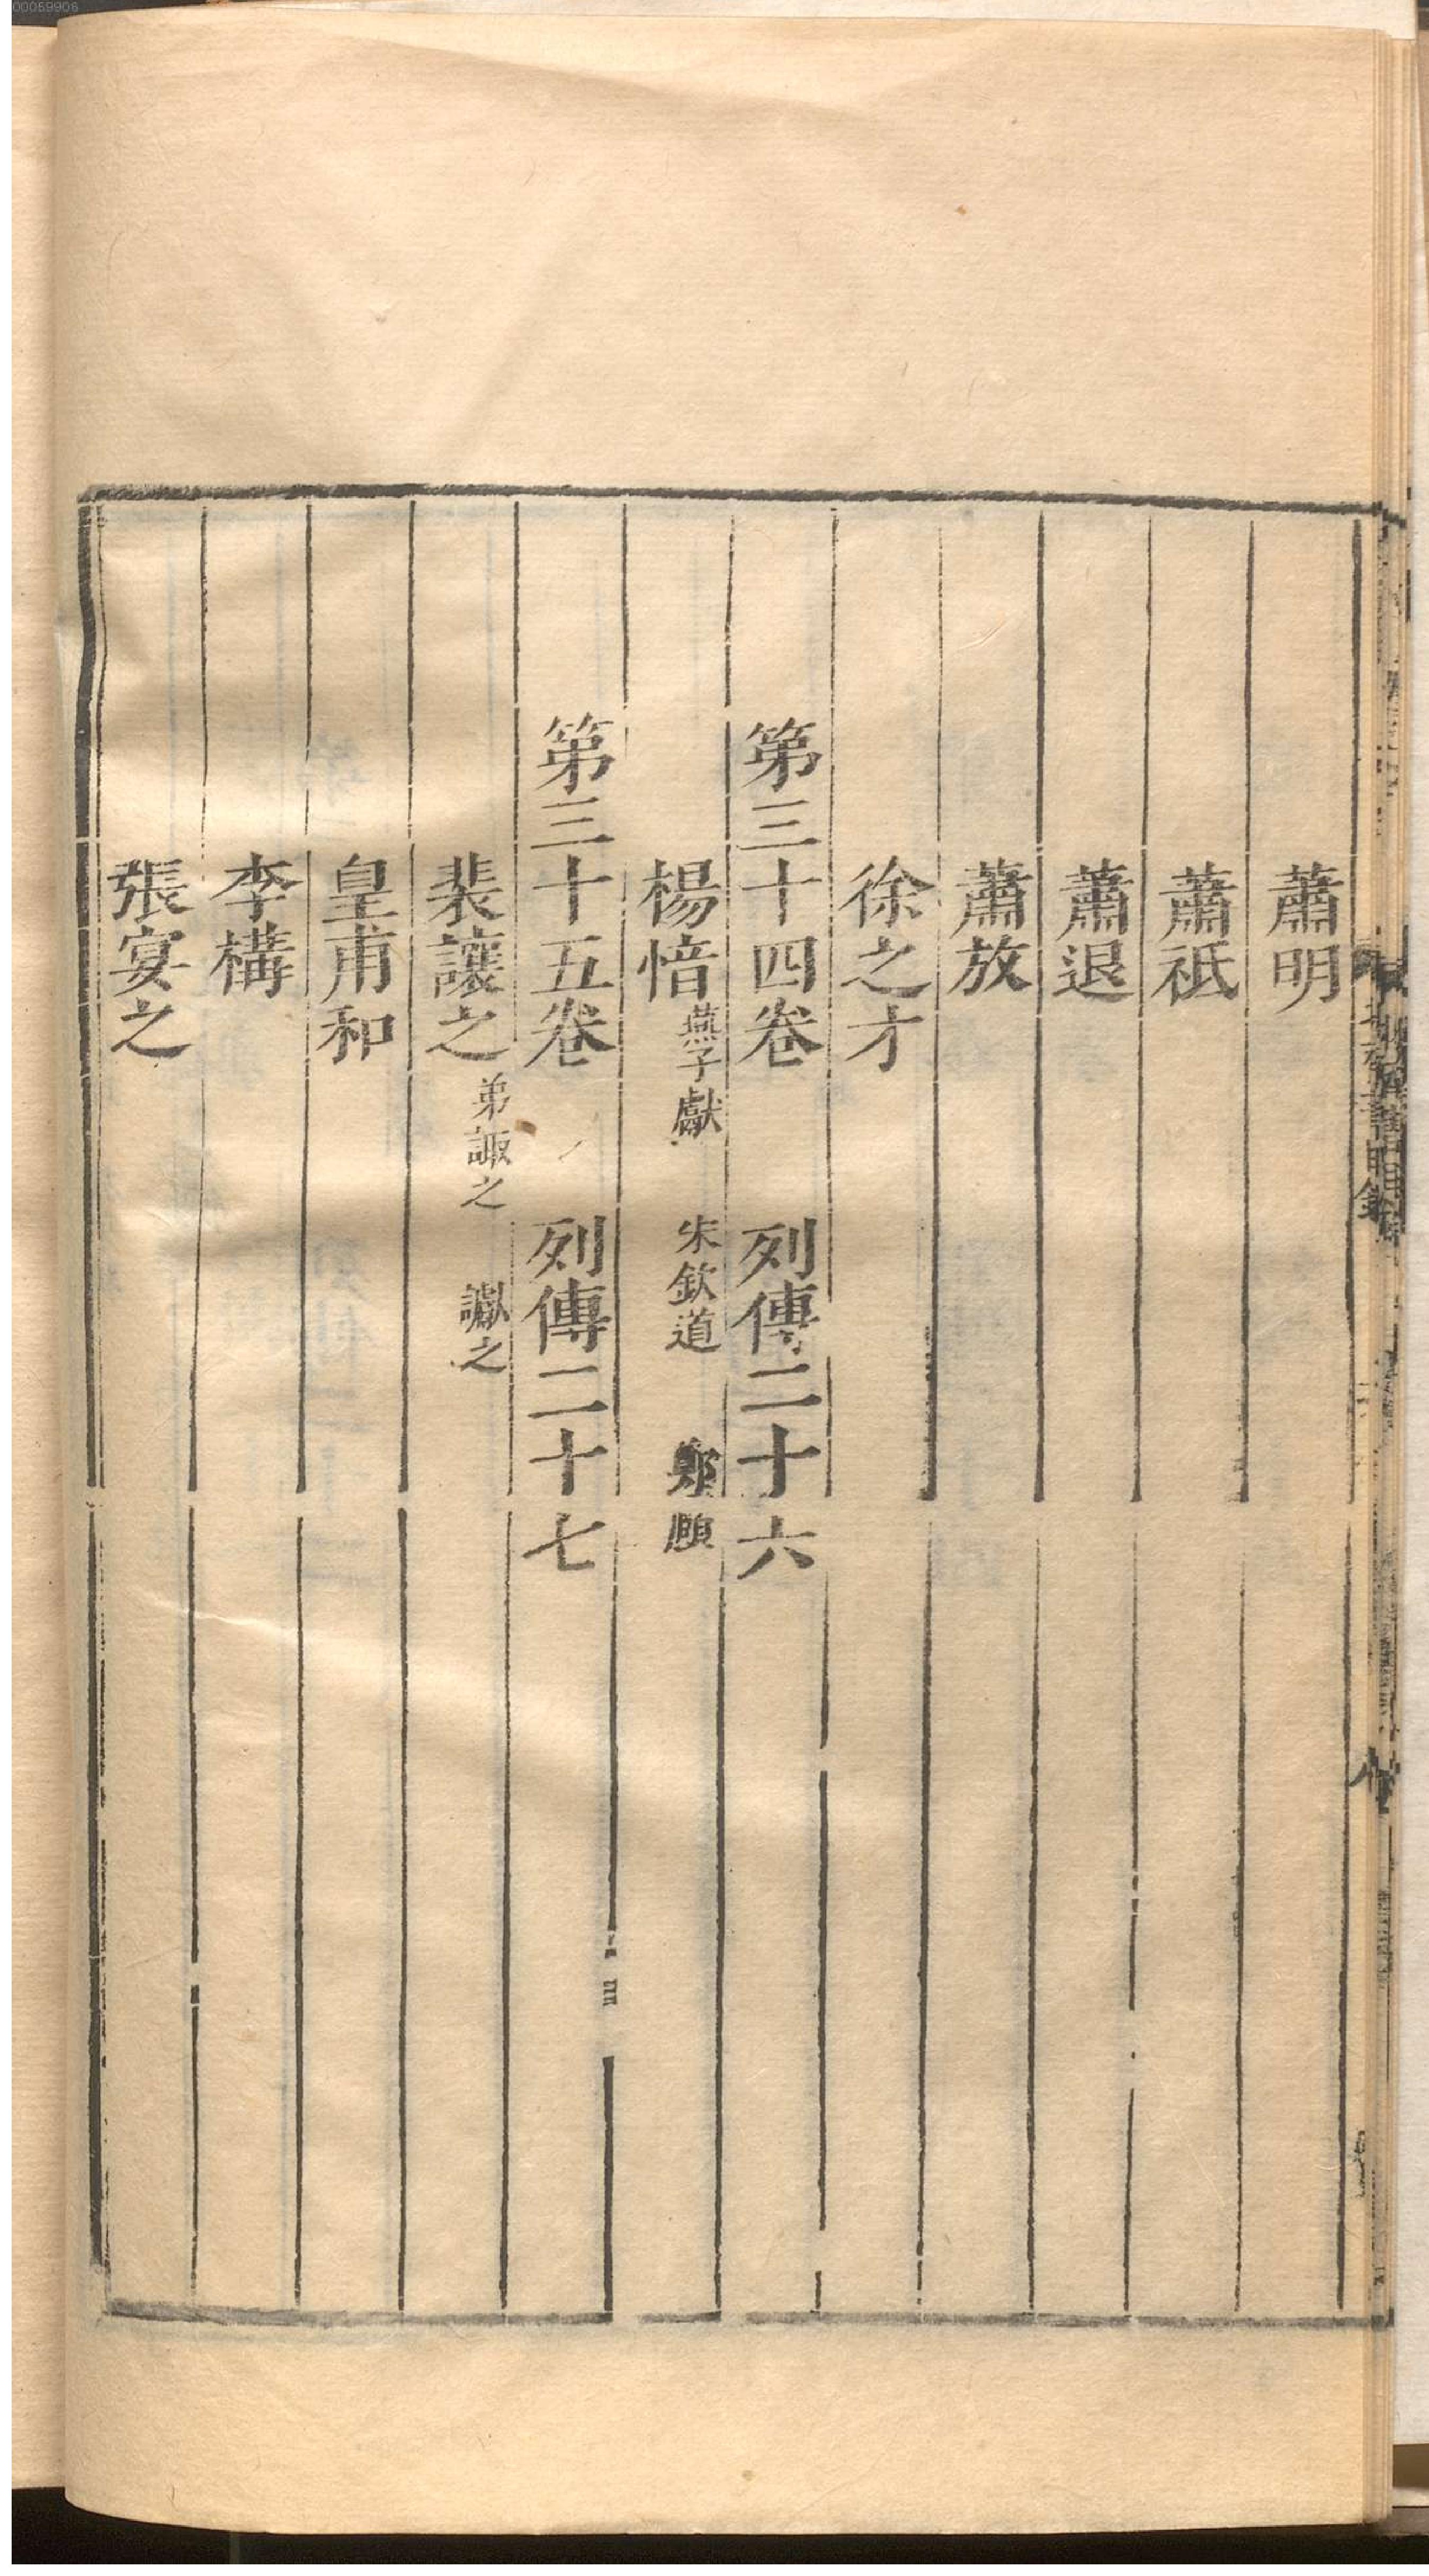 00059906
蕭明
蕭祗
蕭退
蕭放
徐之才
第三十四卷 列傳二十六
楊愔 燕子獻 宋欽道 鄭頤
第三十五卷 列傳二十七
裴讓之 弟諏之 讞之
皇甫和
李構
張宴之